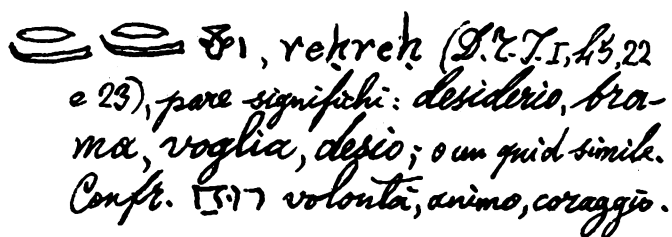 , reḥreḥ (D.T.J.I,45,22
e 23), pare significhi: desiderio, bra-
ma, voglia, desio; o un quid simile.
Confr. רוח volontà, animo, coraggio.